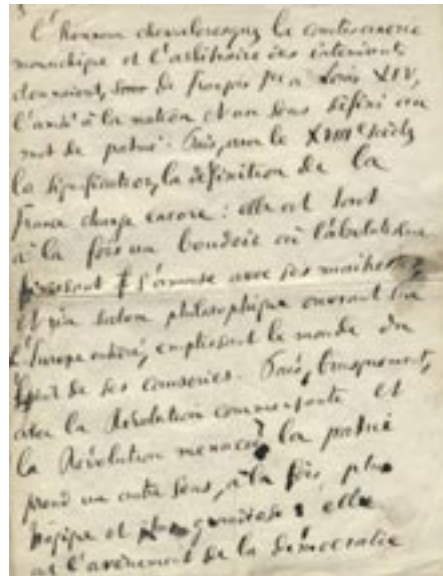 L'honneur chevaleresque, la courtisanerie
monarchique et l'arbitraire des intendants
donnaient, sous de François Ier à Louis XIV,
l'unité à la nation et un sens défini au
mot de patrie. Puis, avec le XVIIIe siècle,
la signification, la définition de la
France change encore : elle est tout
à la fois un boudoir où l'absolutisme
finissant s'amuse avec ses
et un salon philosophique ouvrant sur
l'Europe entière, emplissant le monde du
bruit de ses causeries. Puis, brusquement,
avec la Révolution commençante et
la Révolution menacée, la patrie
prend un autre sens, à la fois plus
et plus : elle
est l'avènement de la démocratie